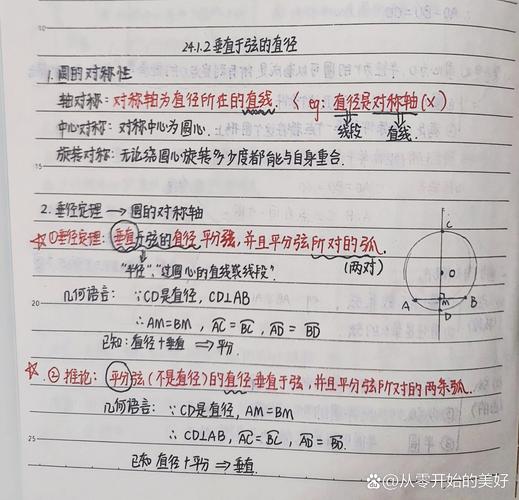 24.1.2 垂直于弦的直径
1. 圆的对称性
轴对称：对称轴为直径所在的直线. < eg: 直径是对称轴(X)
线段 直线.
中心对称：对称中心为圆心.
旋转对称：无论绕圆心旋转多少度都能与自身重合.
15
2. 垂径定理 → 圆的对称轴
☆ ①垂径定理：垂直于弦的直径平分弦, 并且平分弦所对的弧.
"半径", "过圆心的直线或线段". (两对)
20
几何语言：∵CD是直径, CD⊥AB
∴AM=BM , AC=BC , AD=BD
已知：直径+垂直 ⇒ 平分.
☆ ② 推论：平分弦(不是直径)的直径垂直于弦, 并且平分弦所对的两条弧.
几何语言：∵CD是直径, AM=BM
25
∴CD⊥AB, AC=BC , AD=BD.
已知 直径+平分 ⇒ 垂直.
C
O
A M B
D
@从零开始的美好